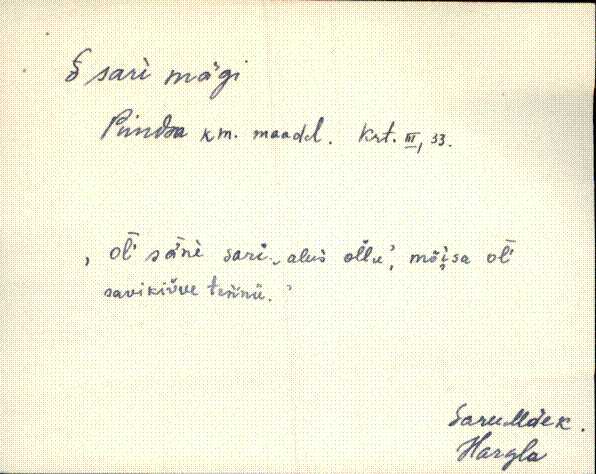 Ssari mägi
Pindsa km. maadel. Krt. III, 33.
, oĺl säne sari-aluš ollu’, mõisa oĺl
savikivve tennü. ’
Saru Mäe k.
Hargla